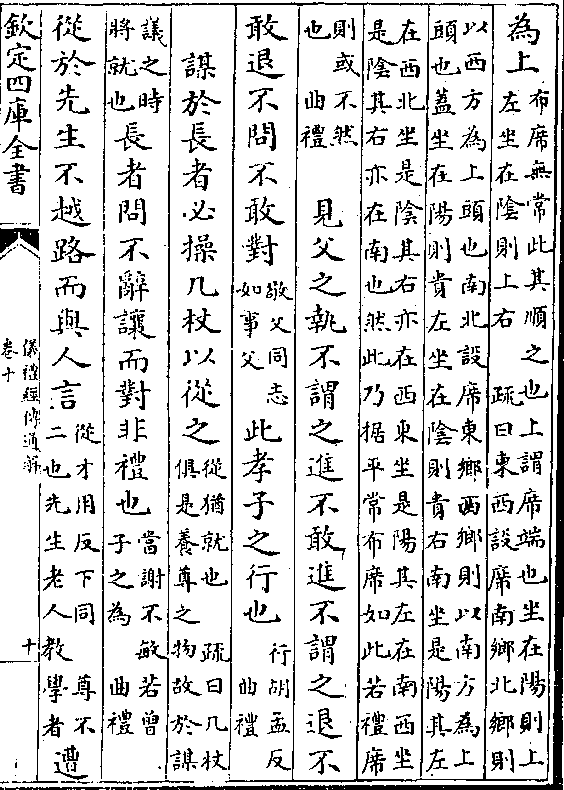 為上
布席無常此其順之也上謂席端也坐在陽則上
左坐在陰則上右　疏曰東西設席南鄉北鄉則
以西方為上頭也南北設席東鄉西鄉則以南方為上
頭也蓋坐在陽則貴左坐在陰則貴右南坐是陽其左
在西北坐是陰其右亦在西東坐是陽其左在南西坐
是陰其右亦在南也然此乃据平常布席如此若禮席
則或不然
也　曲禮
見父之執不謂之進不敢進不謂之退不
敢退不問不敢對
敬父同志
如事父
此孝子之行也
行胡孟反
曲禮
謀於長者必操几杖以從之
從猶就也　疏曰几杖
俱是養尊之物故於謀
議之時
將就也
長者問不辭讓而對非禮也
當謝不敏若曾
子之為　曲禮
從於先生不越路而與人言
從才用反下同　尊不
二也先生老人教學者
遭
欽定四庫全書
儀禮經傳通解
卷十
十